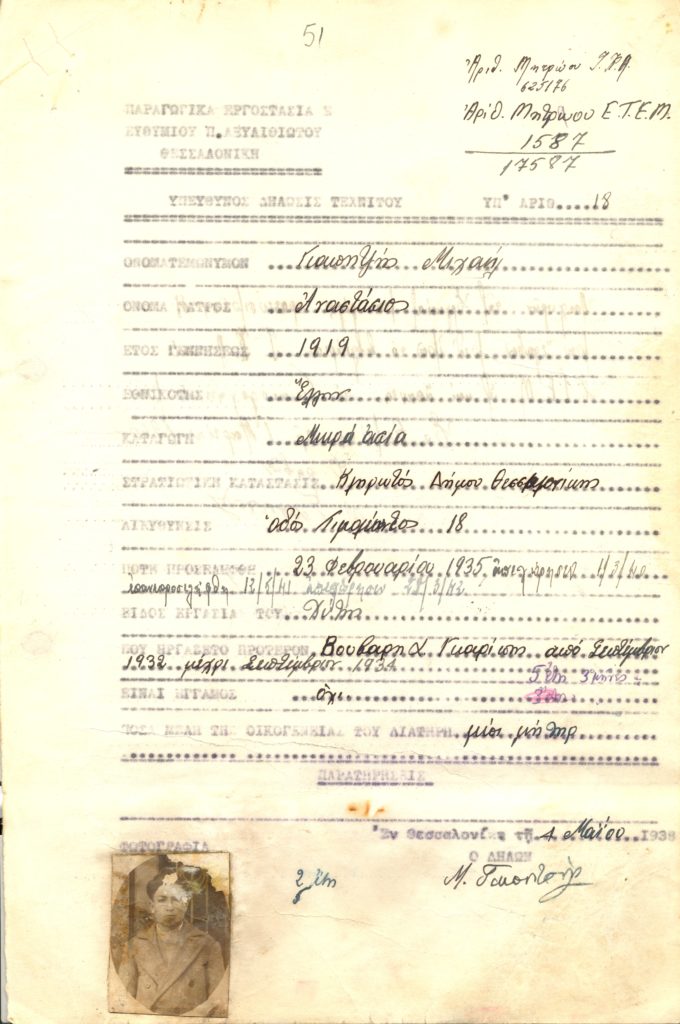 51
Ἀριθ. Μητρώου Ι.Κ.Α.
625176
Ἀριθ. Μητρώου Ε.Τ.Ε.Μ.
1587
17587
ΠΑΡΑΓΩΓΙΚΑ ΕΡΓΟΣΤΑΣΙΑ Ξ
ΕΥΘΥΜΙΟΥ Π. ΑΞΥΛΙΘΙΩΤΟΥ
ΘΕΣΣΑΛΟΝΙΚΗ
ΥΠΕΥΘΥΝΟΣ ΔΗΛΩΣΙΣ ΤΕΧΝΙΤΟΥ ΥΠ' ΑΡΙΘ....18
ΟΝΟΜΑΤΕΠΩΝΥΜΟΝ Μιχαήλ
ΟΝΟΜΑ ΠΑΤΡΟΣ Ἀναστάσιος
ΕΤΟΣ ΓΕΝΝΗΣΕΩΣ 1919
ΕΘΝΙΚΟΤΗΣ Ἕλλην
ΚΑΤΑΓΩΓΗ Μικρά Ασία
ΣΤΡΑΤΙΩΤΙΚΗ ΚΑΤΑΣΤΑΣΙΣ Κληρωτός Δήμου Θεσσαλονίκης
ΔΙΕΥΘΥΝΣΙΣ ὁδός 18
ΠΟΤΕ ΠΡΟΣΕΛΗΦΘΗ 23 Φεβρουαρίου 1935 1/3/40
ἐπαναπροσελήφθη 12/5/41 ἀπεχώρησεν
ΕΙΔΟΣ ΕΡΓΑΣΙΑ ΤΟΥ
ΠΟΥ ΕΙΡΓΑΖΕΤΟ ΠΡΟΤΕΡΟΝ από Σεπτέμβριον
1932 μέχρι Σεπτέμβριον 1934
5 ἔτη 3 μῆνες
ΕΙΝΑΙ ΕΓΓΑΜΟΣ ὄχι
ΠΟΣΑ ΜΕΛΗ ΤΗΣ ΟΙΚΟΓΕΝΕΙΑΣ ΤΟΥ ΔΙΑΤΗΡΗ μία μήτηρ
ΠΑΡΑΤΗΡΗΣΕΙΣ
-1-
Ἐν Θεσσαλονίκη τῇ 4 Μαΐου 1938
ΦΩΤΟΓΡΑΦΙΑ
Ο ΔΗΛΩΝ
2 ἔτη